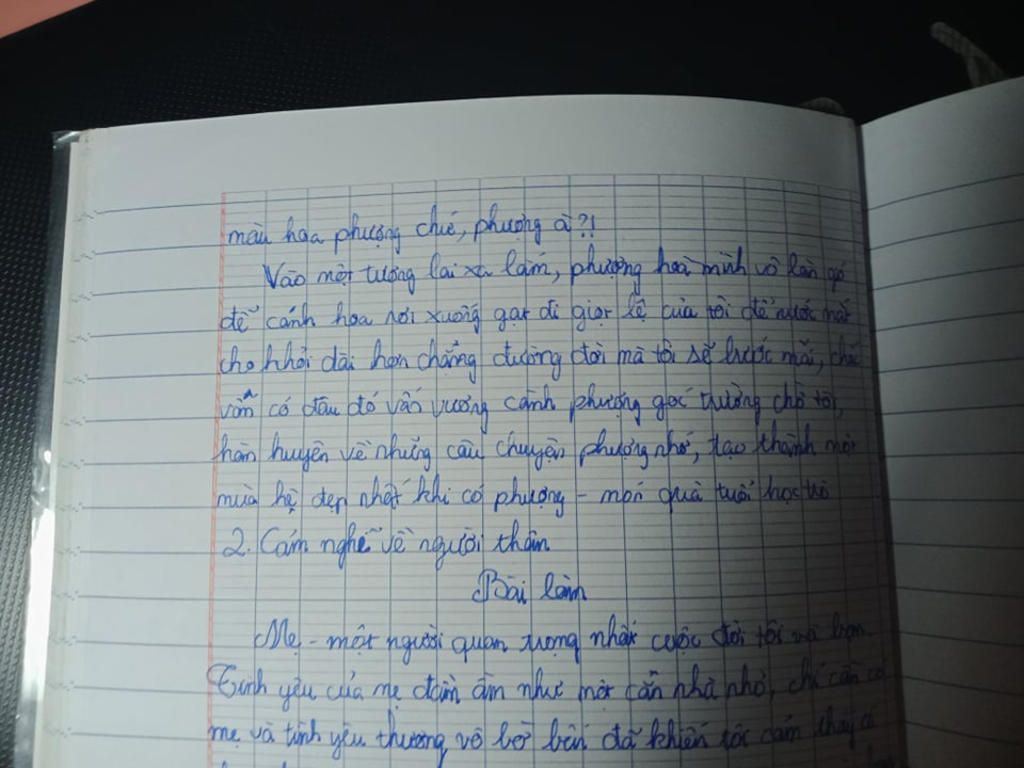 màu hoa phượng chứ, phượng à?!
Vào một tương lai xa lắm, phượng hoà mình vô làn gió
để cánh hoa rơi xuống gạt đi giọt lệ của tôi để nước mắt
cho khỏi dài hơn chẳng đường đời mà tôi sẽ bước mãi, chắc
vẫn có đâu đó vấn vương cành phượng góc trường chờ tôi,
hàn huyên về những câu chuyện phượng nhớ, tạo thành một
mùa hè đẹp nhất khi có phượng - món quà tuổi học trò
2. Cảm nghĩ về người thân
Bài làm
Mẹ - một người quan trọng nhất cuộc đời tôi và bạn.
Tình yêu của mẹ đầm ấm như một căn nhà nhỏ, chỉ cần có
mẹ và tình yêu thương vô bờ bến đã khiến tôi cảm thấy có